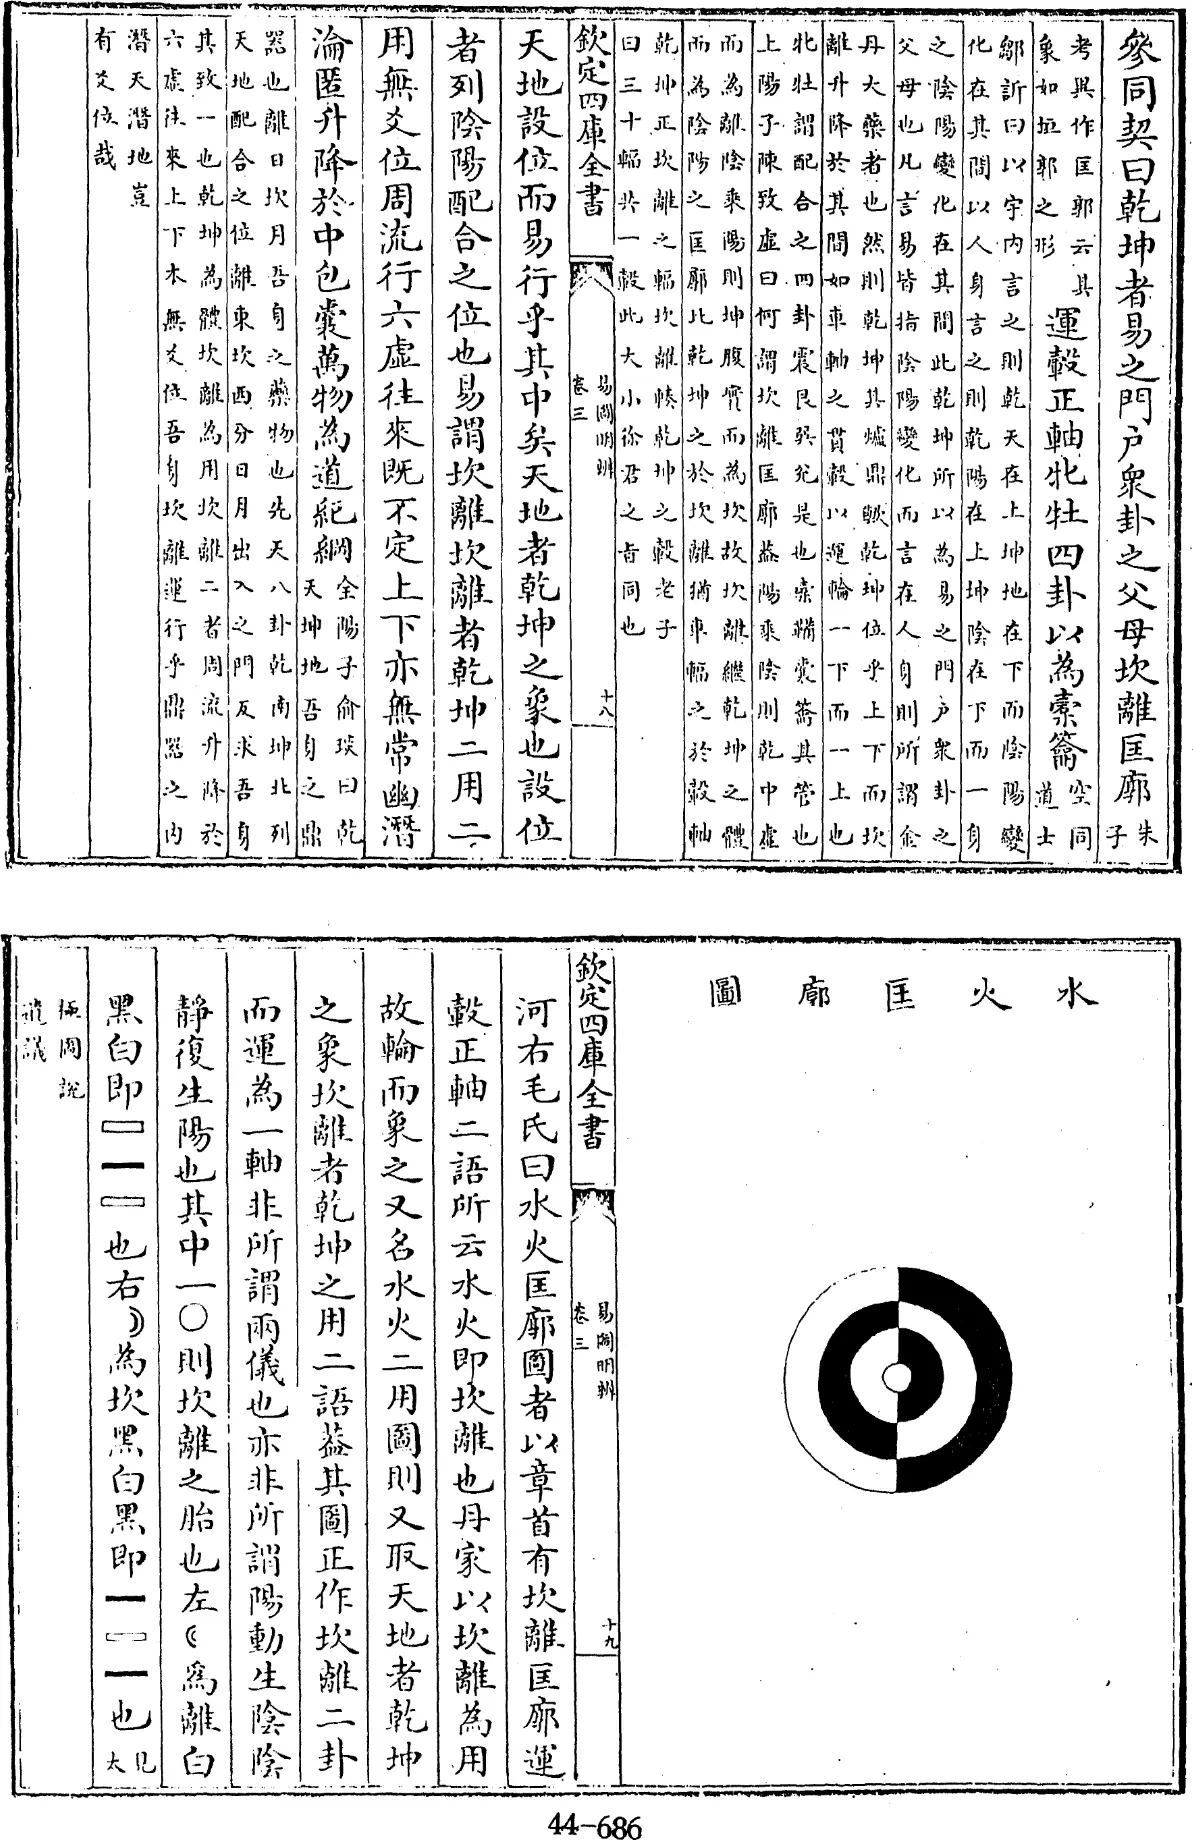 參同契曰乾坤者易之門户衆卦之父母坎離匡廓朱
子
考異作匡郭云其
象如垣郭之形
運轂正軸牝牡四卦以為橐籥空同
道士
鄒訢曰以宇内言之則乾天在上坤地在下而陰陽變
化在其間以人身言之則乾陽在上坤陰在下而一身
之陰陽變化在其間此乾坤所以為易之門户衆卦之
父母也凡言易皆指陰陽變化而言在人身則所謂金
丹大藥者也然則乾坤其爐鼎歟乾坤位乎上下而坎
離升降於其間如車軸之貫轂以運輪一下而一上也
牝牡謂配合之四卦震艮巽兌是也橐鞴囊籥其管也
上陽子陳致虛曰何謂坎離匡廓葢陽乘陰則乾中虛
而為離陰乘陽則坤腹實而為坎故坎離繼乾坤之體
而為陰陽之匡廓比乾坤之於坎離猶車輻之於轂軸
乾坤正坎離之輻坎離湊乾坤之轂老子
曰三十輻共一轂此大小徐君之㫖同也
欽定四庫全書
易圖明辨
卷三
十八
天地設位而易行乎其中矣天地者乾坤之象也設位
者列陰陽配合之位也易謂坎離坎離者乾坤二用二
用無爻位周流行六虛往來既不定上下亦無常幽潛
淪匿升降於中包囊萬物為道紀綱全陽子俞琰曰乾
天坤地吾身之鼎
器也離日坎月吾身之藥物也先天八卦乾南坤北列
天地配合之位離東坎西分日月出入之門反求吾身
其致一也乾坤為體坎離為用坎離二者周流升降於
六虛往來上下本無爻位吾身坎離運行乎鼎器之内
潛天潛地豈
有爻位哉
水火匡廓圖
欽定四庫全書
易圖明辨
卷三
十九
河右毛氏曰水火匡廓圖者以章首有坎離匡廓運
轂正軸二語所云水火即坎離也丹家以坎離為用
故輪而象之又名水火二用圖則又取天地者乾坤
之象坎離者乾坤之用二語葢其圖正作坎離二卦
而運為一軸非所謂兩儀也亦非所謂陽動生陰陰
靜復生陽也其中一〇則坎離之胎也左☾為離白
黑白即▭▬▭也右☽為坎黑白黑即▬▭▬也見
太
極圖說
遺議
44-686